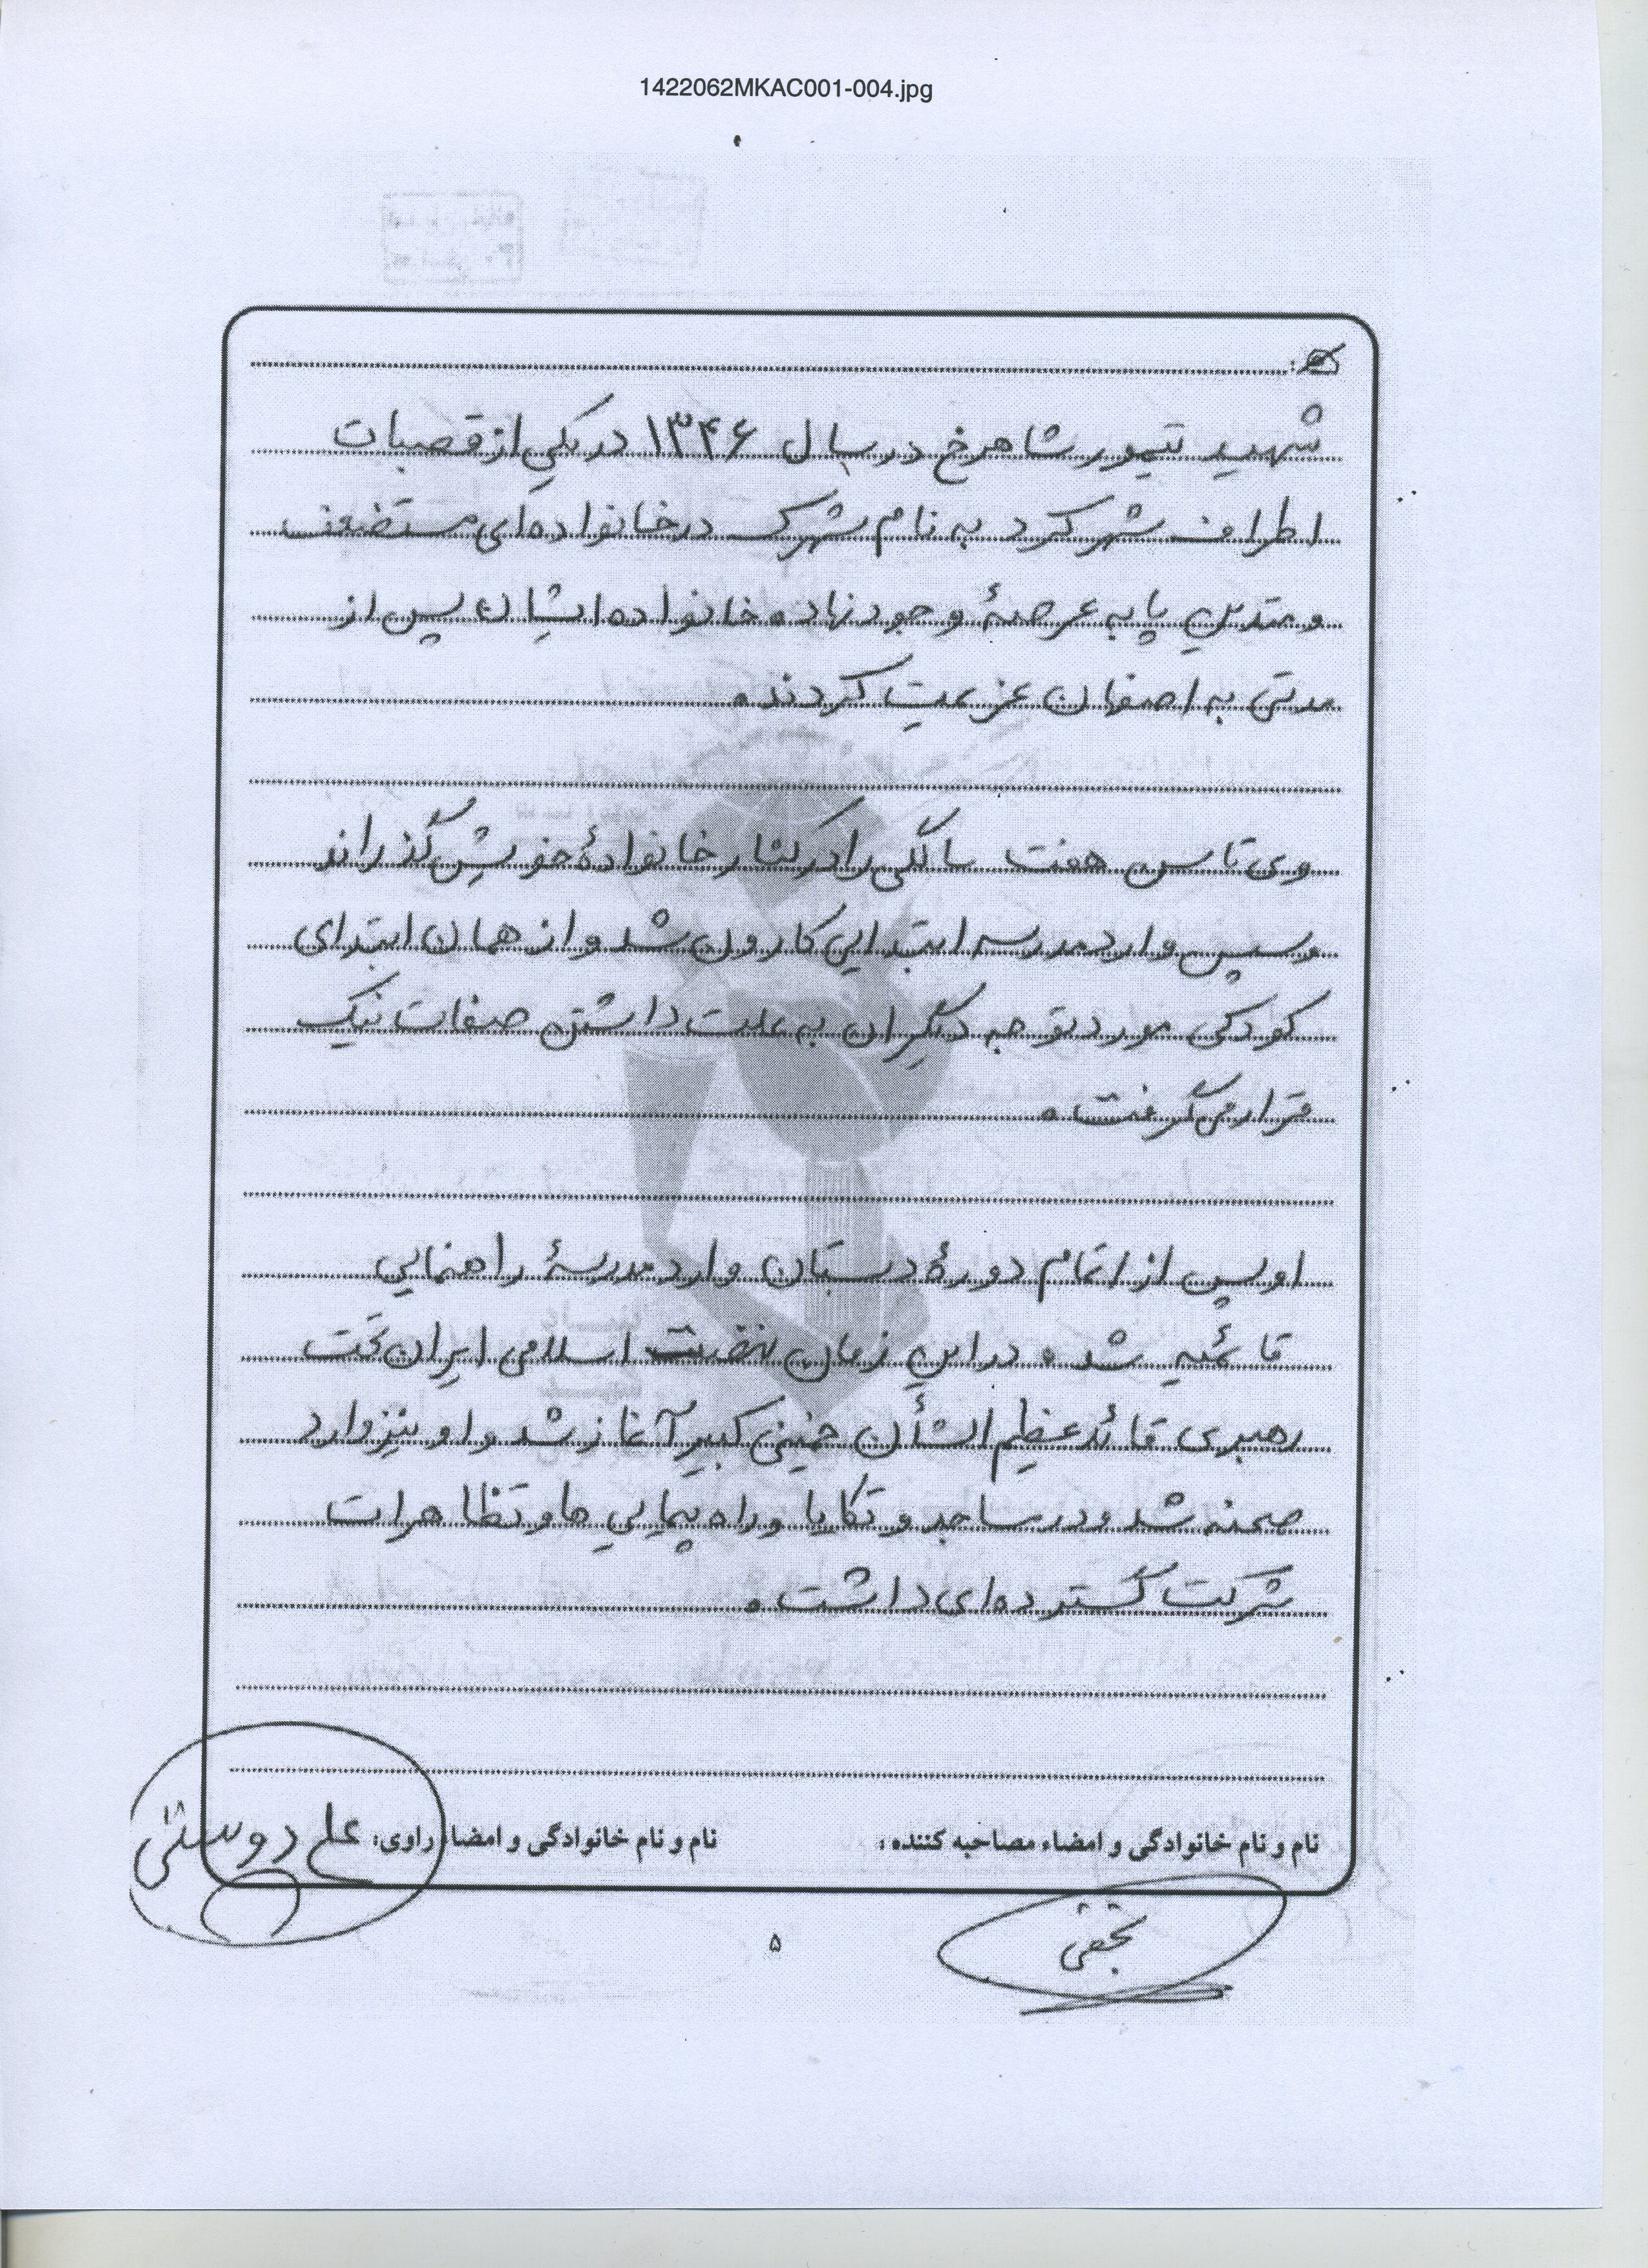 1422062MKAC001-004.jpg
شهید تیمور شاهرخ در سال ۱۳۴۶ در یکی از قصبات
اطراف شهر کرد به نام شهرک در خانواده‌ای مستضعف
و متدین پا به عرصهٔ وجود نهاد ه خانواده ایشان پس از
مدتی به اصفهان عزیمت کردند.
وی تا سن هفت سالگی را در کنار خانوادهٔ خویش گذراند
و سپس وارد مدرسه ابتدایی کارون شد و از همان ابتدای
کودکی مورد توجه دیگران به علت داشتن صفات نیک
قرار می گرفت.
او پس از اتمام دورهٔ دبستان وارد مدرسهٔ راهنمایی
قائمیه شد. در این زمان نهضت اسلامی ایران تحت
رهبری قائد عظیم الشأن خمینی کبیر آغاز شد و او نیز وارد
صحنه شد و در مساجد و تکایا و راه پیمایی ها و تظاهرات
شرکت گسترده‌ای داشت.
نام و نام خانوادگی و امضاء مصاحبه کننده: نام و نام خانوادگی و امضاء راوی: علی دوستی
نجفی
۵